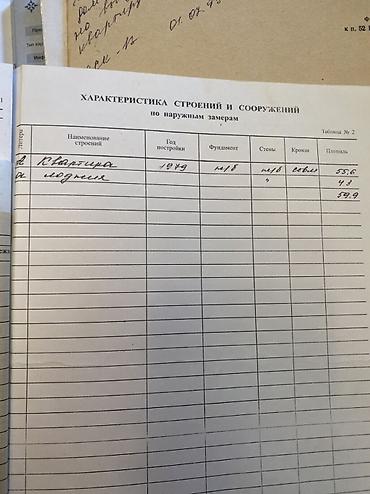 на
квартиру
01.07.9
к п. 52
ХАРАКТЕРИСТИКА СТРОЕНИЙ И СООРУЖЕНИЙ
по наружным замерам
Таблица № 2
Литера Наименование строений Год постройки Фундамент Стены Кровля Площадь
Квартира 1979 ж/б ж/б совм 55,6
а лоджия " 4,3
59,9